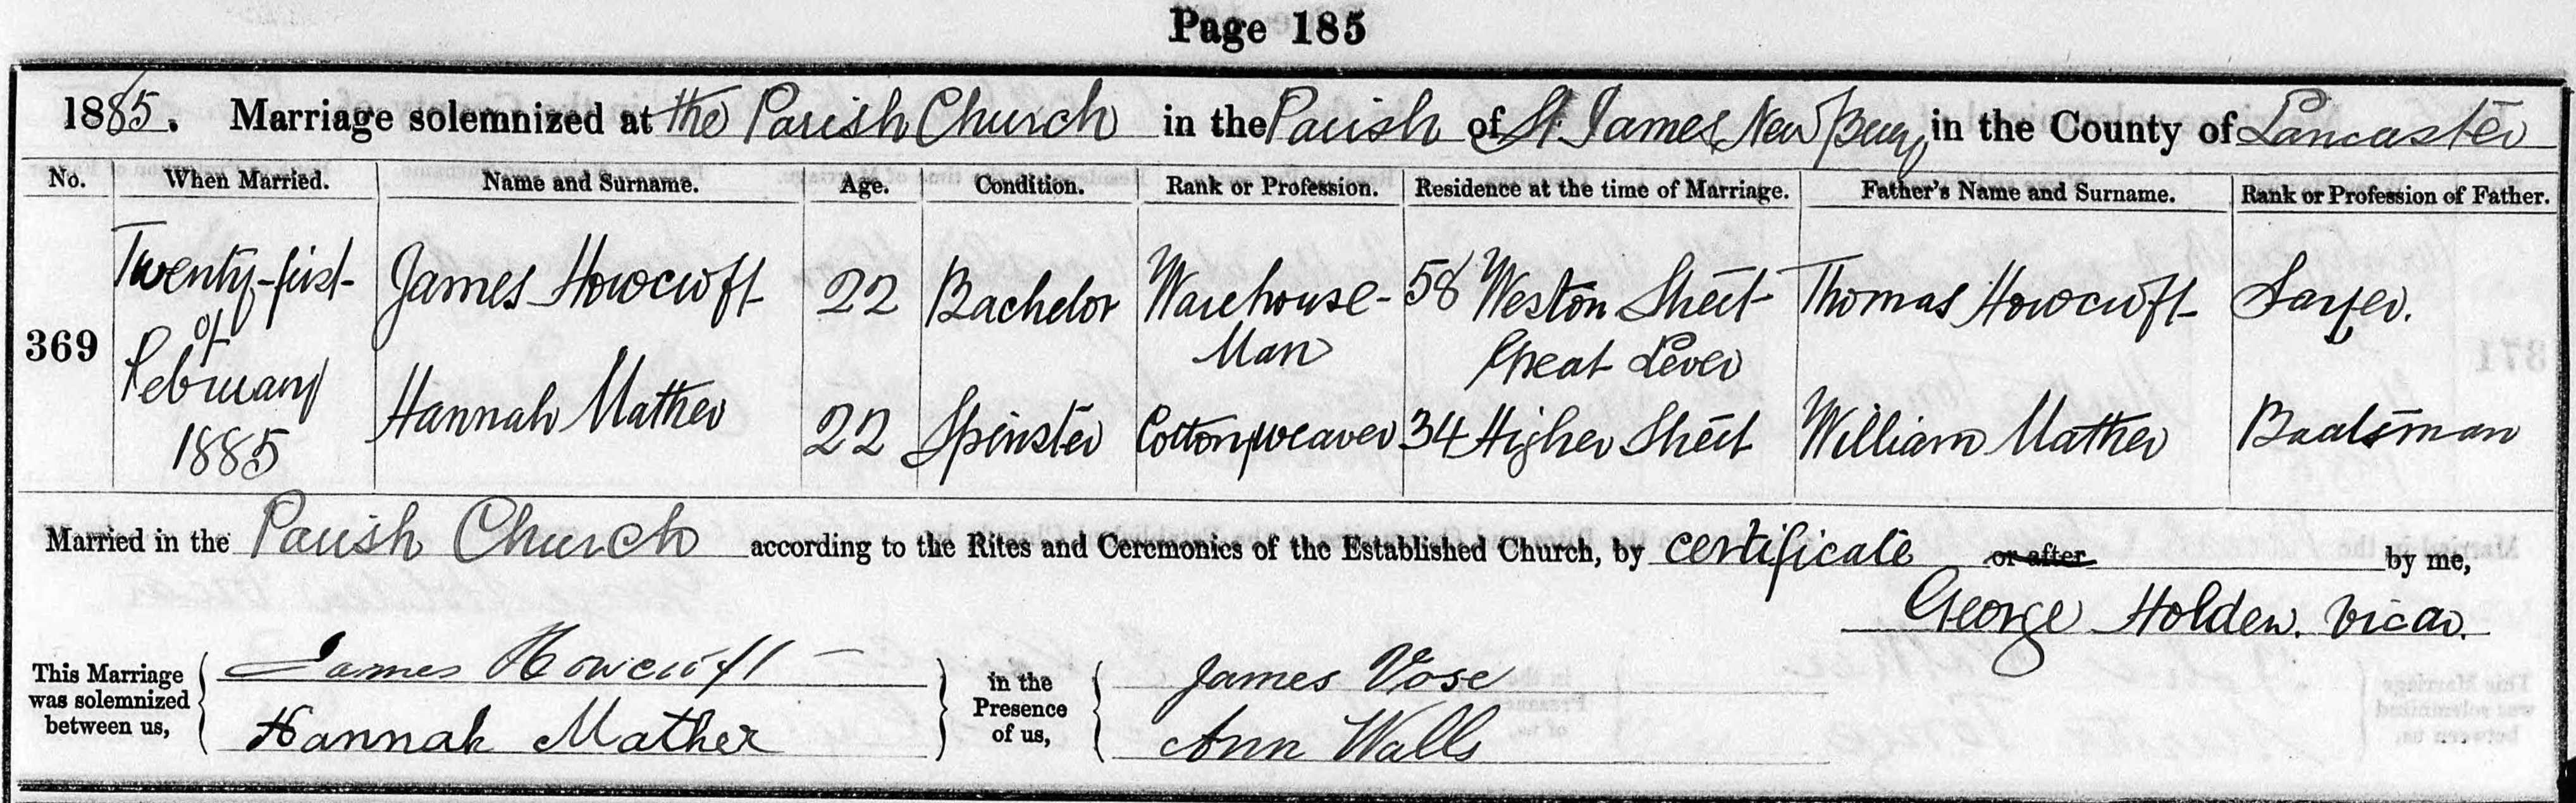 Page 185
1885. Marriage solemnized at the Parish Church in the Parish of St. James New Bury in the County of Lancaster
No. When Married. Name and Surname. Age. Condition. Rank or Profession. Residence at the time of Marriage. Father's Name and Surname. Rank or Profession of Father.
369 Twenty-first of February 1885
James Howcroft 22 Bachelor Warehouse-Man 58 Weston Street Great Lever Thomas Howcroft
Hannah Mather 22 Spinster Cotton weaver 34 Higher Street William Mather Boatsman
Married in the Parish Church according to the Rites and Ceremonies of the Established Church, by certificate or after by me,
George Holden. Vicar.
This Marriage was solemnized between us, James Howcroft in the Presence of us, James Vose
Hannah Mather Ann Walls